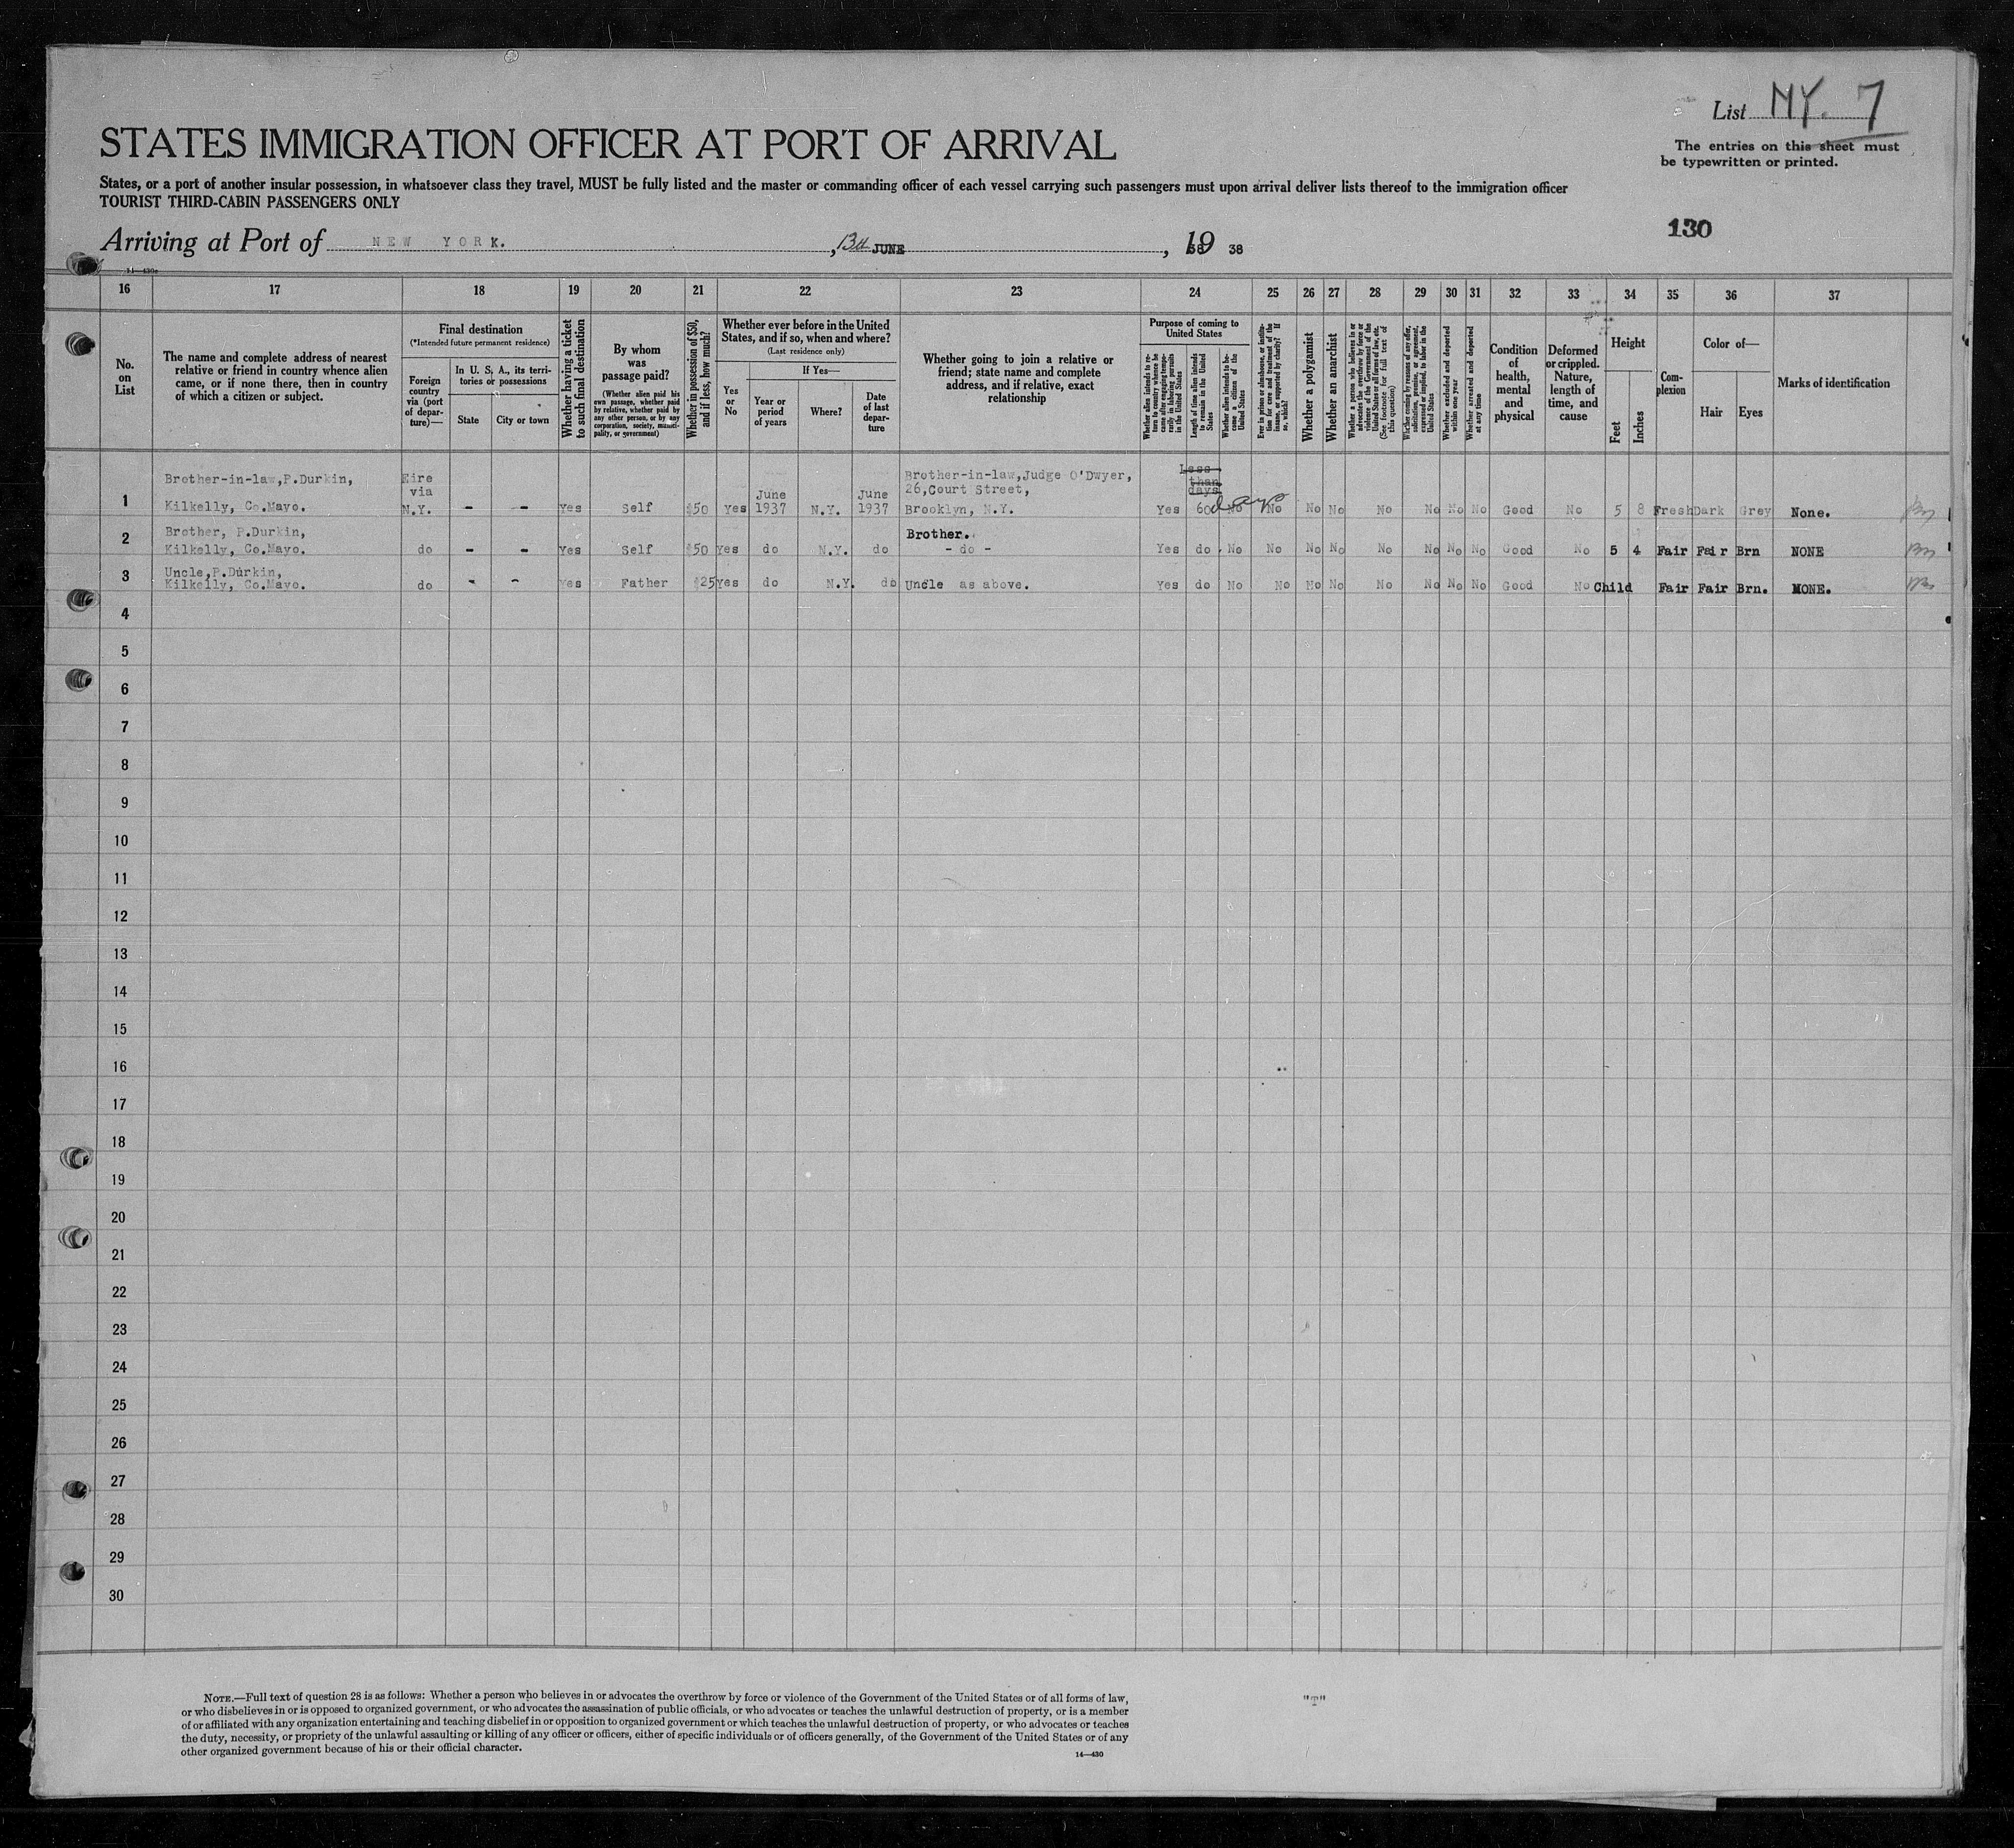 List NY. 7
STATES IMMIGRATION OFFICER AT PORT OF ARRIVAL
The entries on this sheet must
be typewritten or printed.
States, or a port of another insular possession, in whatsoever class they travel, MUST be fully listed and the master or commanding officer of each vessel carrying such passengers must upon arrival deliver lists thereof to the immigration officer
TOURIST THIRD-CABIN PASSENGERS ONLY
130
Arriving at Port of NEW YORK. , 13th JUNE , 19 38
14—430
16 17 18 19 20 21 22 23 24 25 26 27 28 29 30 31 32 33 34 35 36 37
No.
on
List
The name and complete address of nearest
relative or friend in country whence alien
came, or if none there, then in country
of which a citizen or subject.
Final destination
(*Intended future permanent residence)
Foreign
country
via (port
of depar-
ture)—
In U. S. A., its terri-
tories or possessions
State
City or town
Whether having a ticket
to such final destination
By whom
was
passage paid?
(Whether alien paid his
own passage, whether paid
by relative, whether paid by
any other person, or by any
corporation, society, munici-
pality, or government)
Whether in possession of $50,
and if less, how much?
Whether ever before in the United
States, and if so, when and where?
(Last residence only)
Yes
or
No
If Yes—
Year or
period
of years
Where?
Date
of last
depar-
ture
Whether going to join a relative or
friend; state name and complete
address, and if relative, exact
relationship
Purpose of coming to
United States
Whether alien intends to re-
turn to country whence he
came after engaging tempo-
rarily in laboring pursuits
in the United States
Length of time alien intends
to remain in the United
States
Whether alien intends to be-
come a citizen of the
United States
Ever in prison or almshouse, or institu-
tion for care and treatment of the
insane, or supported by charity? If
so, which?
Whether a polygamist
Whether an anarchist
Whether a person who believes in or
advocates the overthrow by force or
violence of the Government of the
United States or all forms of law, etc.
(See footnote for full text of
this question)
Whether coming by reasons of any offer,
solicitation, promise, or agreement,
expressed or implied, to labor in the
United States
Whether excluded and deported
within one year
Whether arrested and deported
at any time
Condition
of
health,
mental
and
physical
Deformed
or crippled.
Nature,
length of
time, and
cause
Height
Feet
Inches
Com-
plexion
Color of—
Hair
Eyes
Marks of identification
Brother-in-law,P.Durkin, Eire Brother-in-law,Judge O'Dwyer, Less
via June June 26,Court Street, than days
1 Kilkelly, Co.Mayo. N.Y. - - Yes Self $50 Yes 1937 N.Y. 1937 Brooklyn, N.Y. Yes 60 days No No No No No No No No Good No 5 8 Fresh Dark Grey None.
2 Brother, P.Durkin, Brother.
Kilkelly, Co.Mayo. do - - Yes Self $50 Yes do N.Y. do - do - Yes do No No No No No No No No Good No 5 4 Fair Fair Brn NONE
3 Uncle,P.Durkin,
Kilkelly, Co.Mayo. do - - Yes Father $25 Yes do N.Y. do Uncle as above. Yes do No No No No No No No No Good No Child Fair Fair Brn. MONE.
4
5
6
7
8
9
10
11
12
13
14
15
16
17
18
19
20
21
22
23
24
25
26
27
28
29
30
NOTE.—Full text of question 28 is as follows: Whether a person who believes in or advocates the overthrow by force or violence of the Government of the United States or of all forms of law,
or who disbelieves in or is opposed to organized government, or who advocates the assassination of public officials, or who advocates or teaches the unlawful destruction of property, or is a member
of or affiliated with any organization entertaining and teaching disbelief in or opposition to organized government or which teaches the unlawful destruction of property, or who advocates or teaches
the duty, necessity, or propriety of the unlawful assaulting or killing of any officer or officers, either of specific individuals or of officers generally, of the Government of the United States or of any
other organized government because of his or their official character.
14—430
"T"